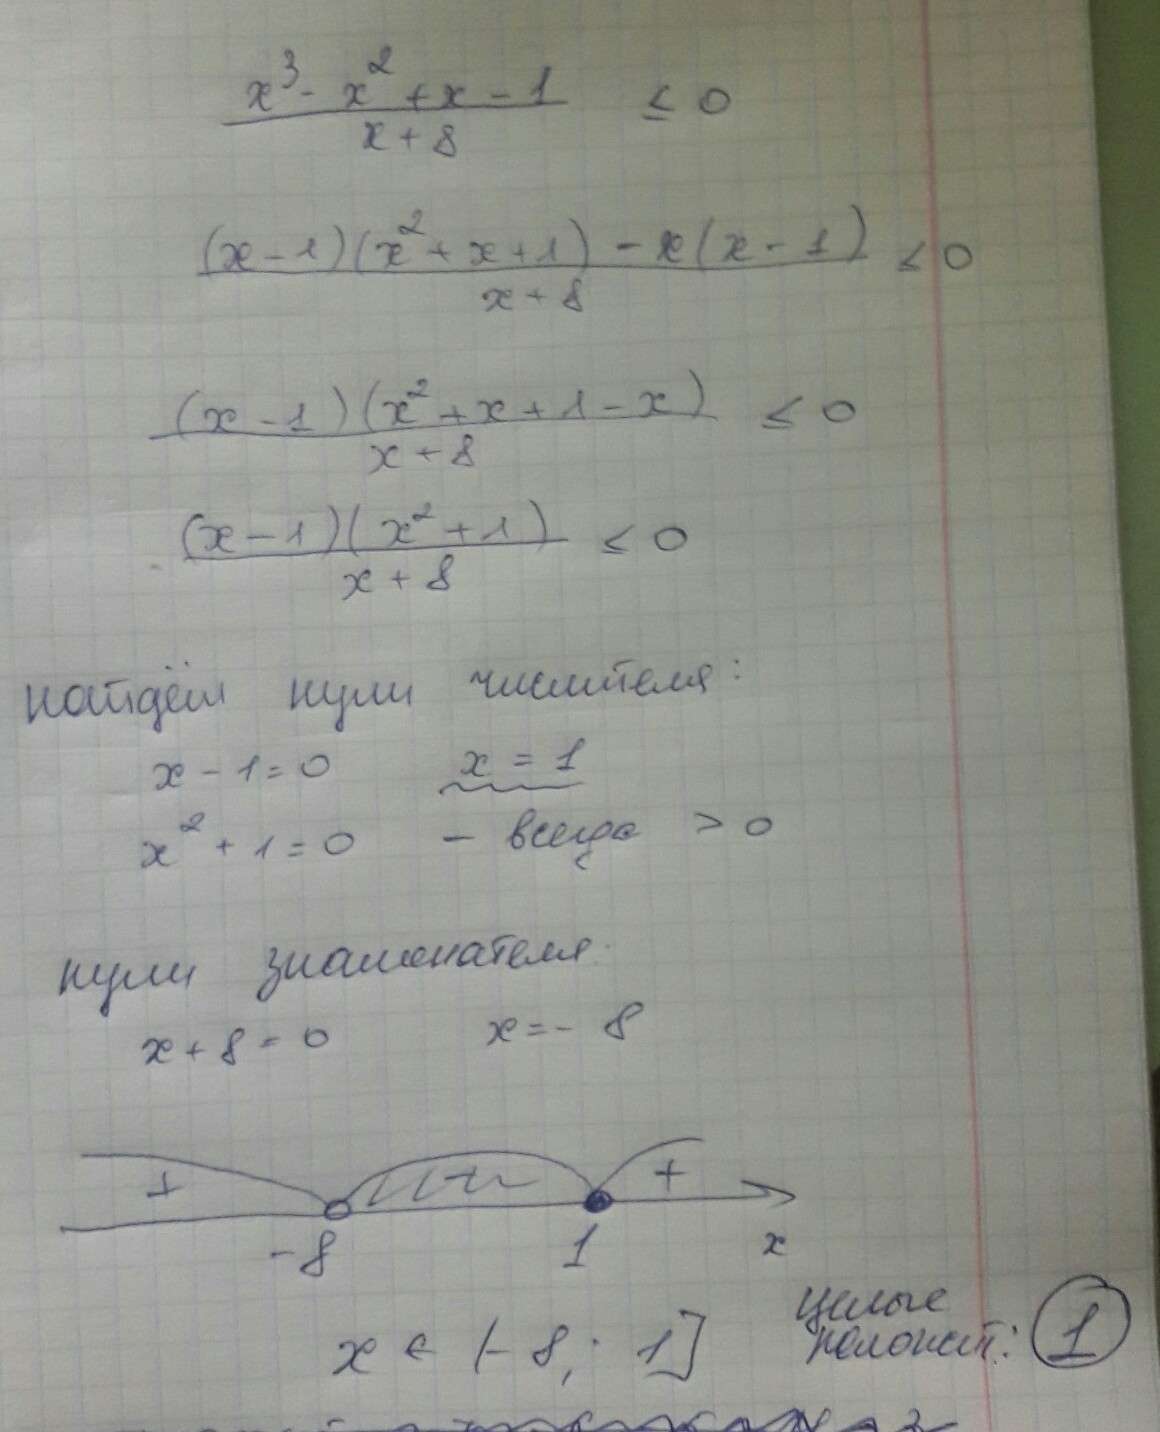 x³ - x² + x - 1 ≤ 0
x + 8
(x - 1)(x² + x + 1) - x(x - 1) ≤ 0
x + 8
(x - 1)(x² + x + 1 - x) ≤ 0
x + 8
(x - 1)(x² + 1) ≤ 0
x + 8
найдём нули числителя:
x - 1 = 0 x = 1
x² + 1 = 0 - всегда > 0
нули знаменателя
x + 8 = 0 x = - 8
+ - +
-8 1 x
x ∈ (-8; 1]
целые
положит: 1